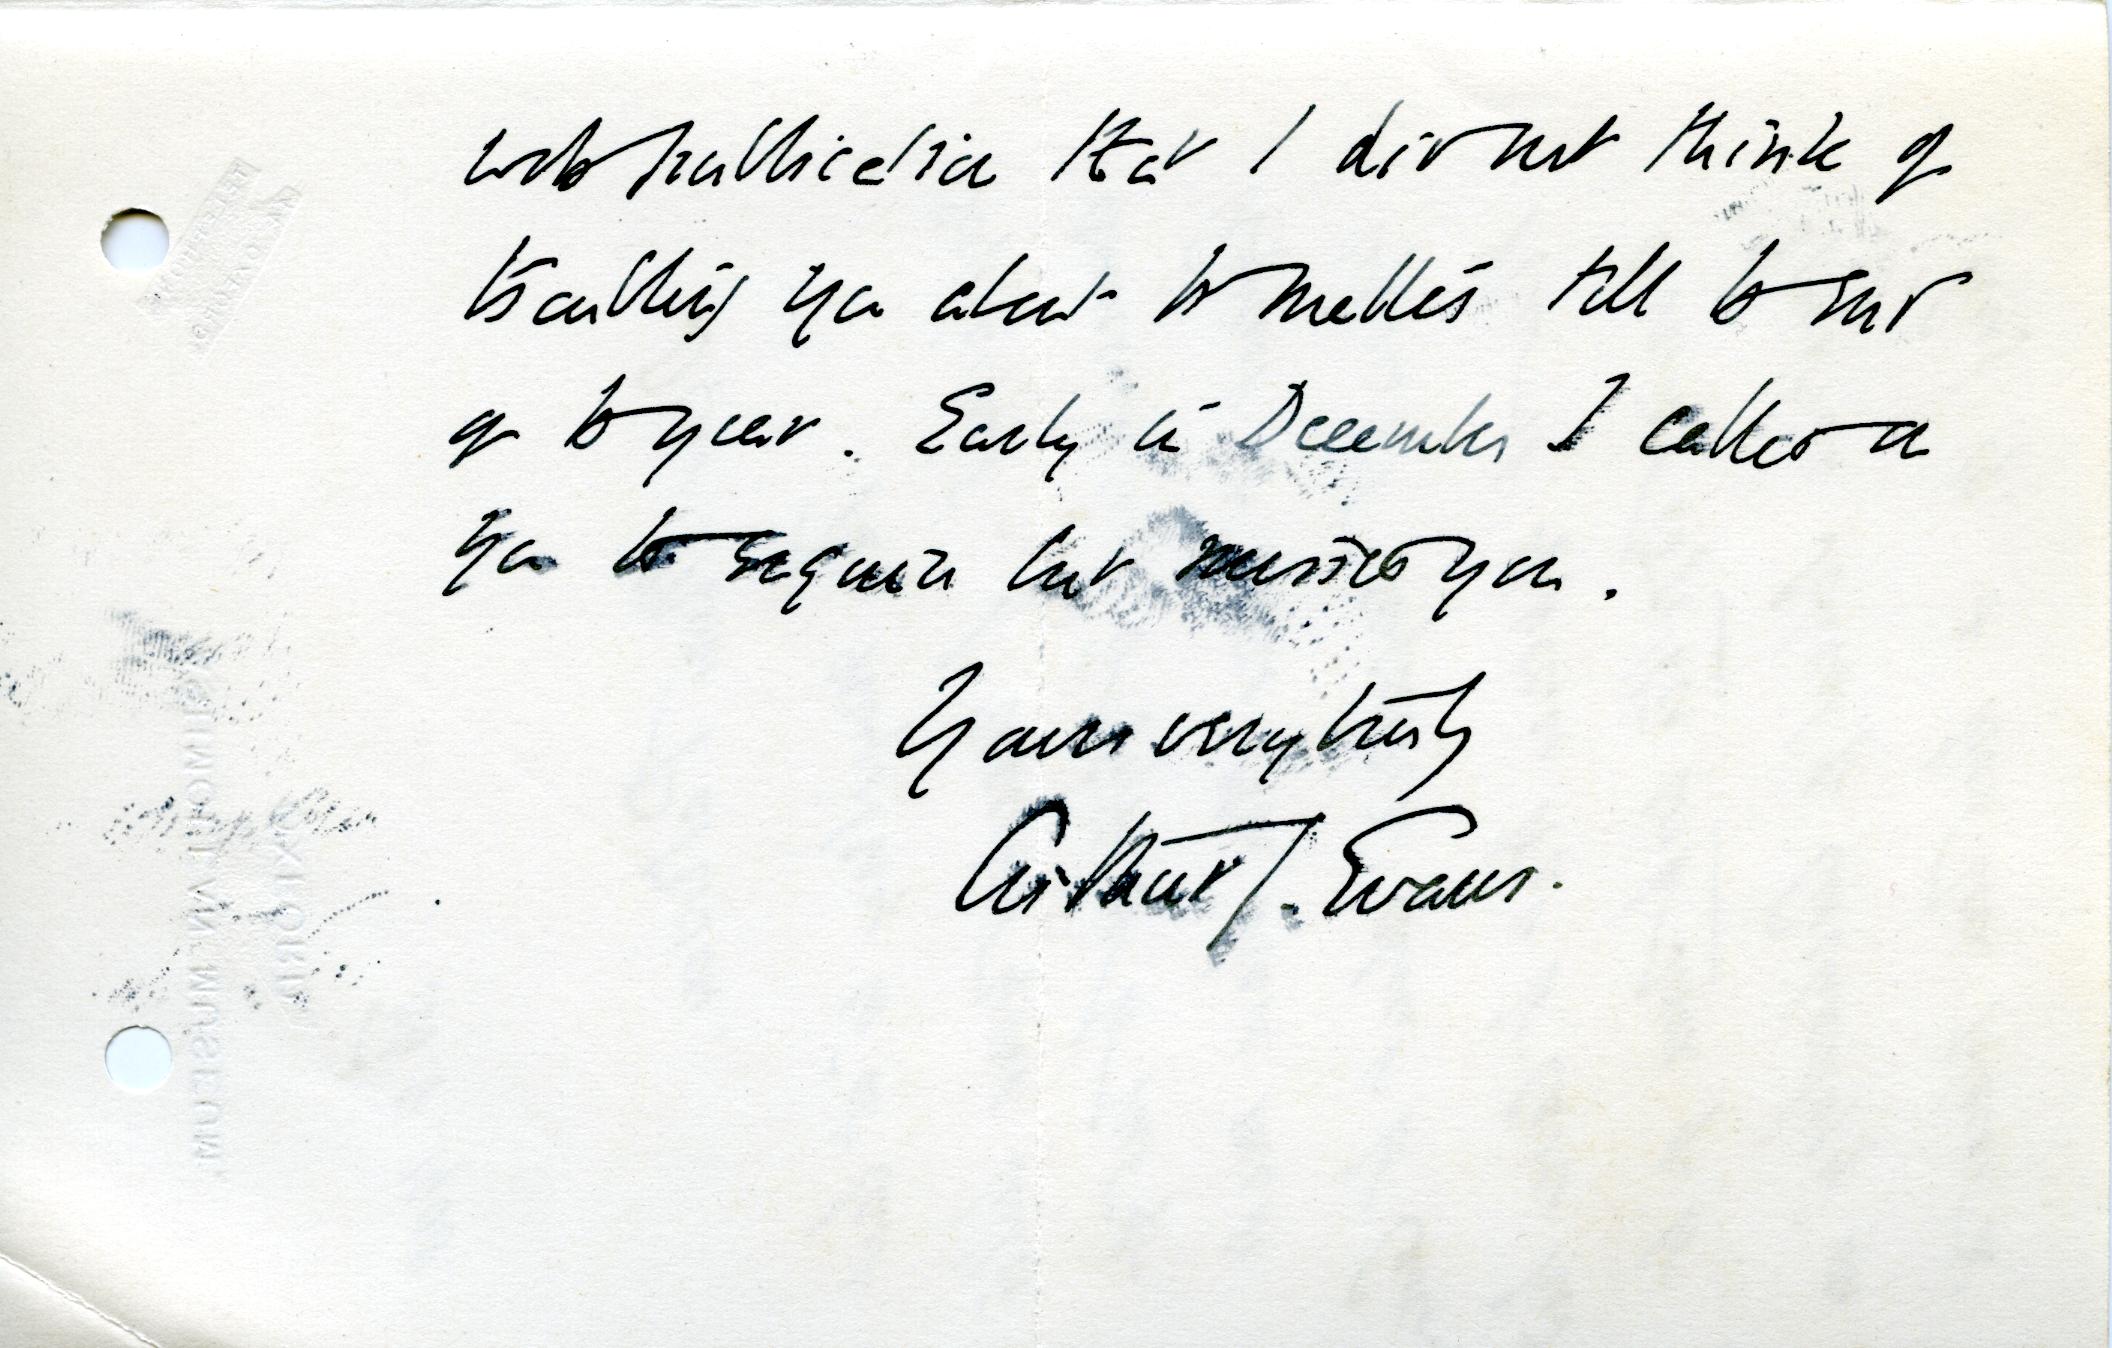 with publication that I did not think of
troubling you about the matter till the end
of the year. Early in December I called on
you to enquire but missed you.
Yours very truly
Arthur J. Evans.